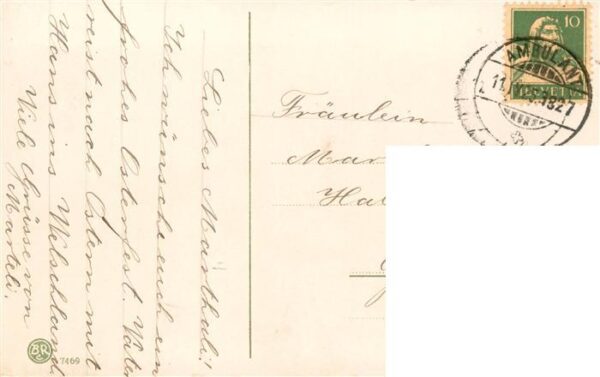 Liebes Marthali!
Ich wünsche euch ein
frohes Osterfest. Vater
reist nach Ostern mit
Hans ins Welschland.
Viele Grüsse von
Marteli.
Fräulein
Mar
Ha
10
HELVETIA
AMBULANT
11.
1927
BR
7469